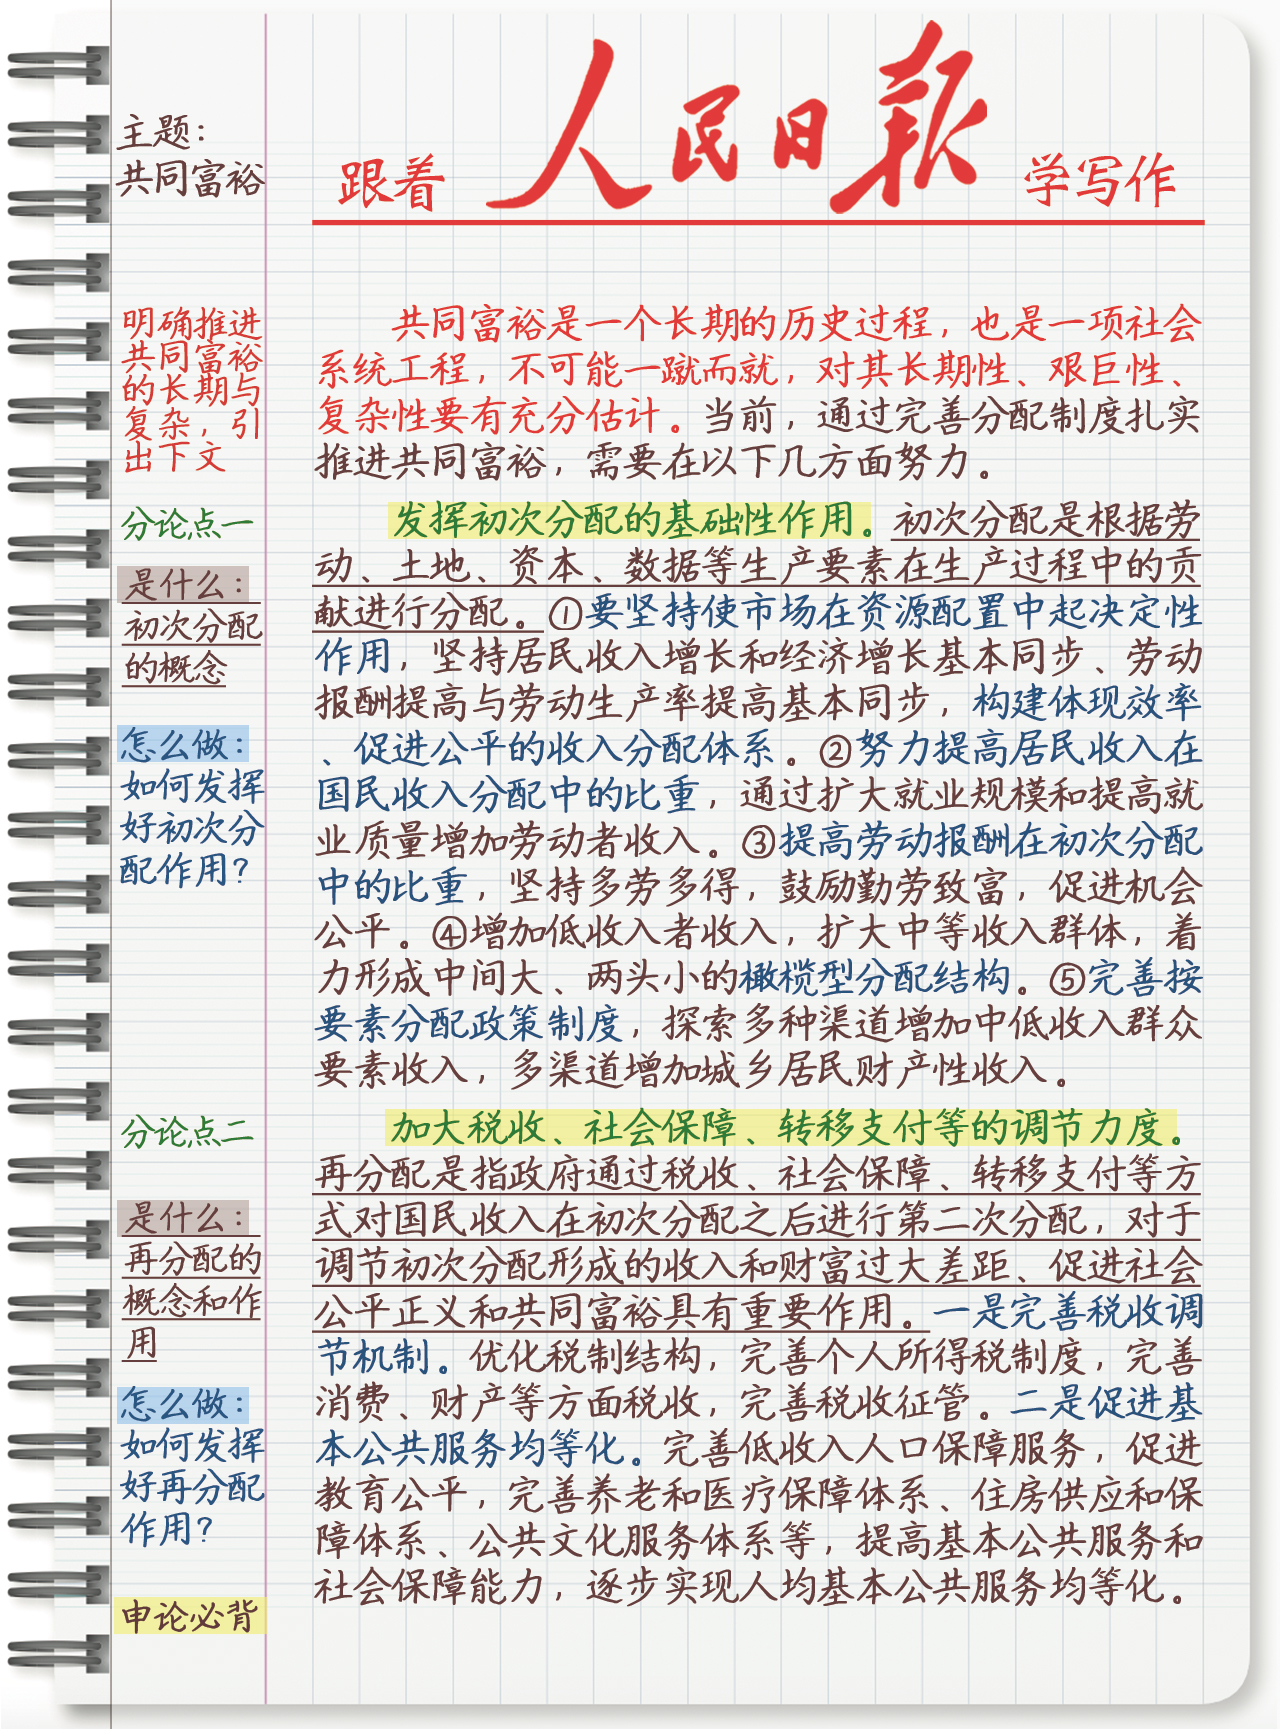 主题：
共同富裕
跟着 人民日报 学写作
明确推进
共同富裕
的长期与
复杂，引
出下文
共同富裕是一个长期的历史过程，也是一项社会
系统工程，不可能一蹴而就，对其长期性、艰巨性、
复杂性要有充分估计。当前，通过完善分配制度扎实
推进共同富裕，需要在以下几方面努力。
分论点一
是什么：
初次分配
的概念
怎么做：
如何发挥
好初次分
配作用？
发挥初次分配的基础性作用。初次分配是根据劳
动、土地、资本、数据等生产要素在生产过程中的贡
献进行分配。①要坚持使市场在资源配置中起决定性
作用，坚持居民收入增长和经济增长基本同步、劳动
报酬提高与劳动生产率提高基本同步，构建体现效率
、促进公平的收入分配体系。②努力提高居民收入在
国民收入分配中的比重，通过扩大就业规模和提高就
业质量增加劳动者收入。③提高劳动报酬在初次分配
中的比重，坚持多劳多得，鼓励勤劳致富，促进机会
公平。④增加低收入者收入，扩大中等收入群体，着
力形成中间大、两头小的橄榄型分配结构。⑤完善按
要素分配政策制度，探索多种渠道增加中低收入群众
要素收入，多渠道增加城乡居民财产性收入。
分论点二
是什么：
再分配的
概念和作
用
怎么做：
如何发挥
好再分配
作用？
加大税收、社会保障、转移支付等的调节力度。
再分配是指政府通过税收、社会保障、转移支付等方
式对国民收入在初次分配之后进行第二次分配，对于
调节初次分配形成的收入和财富过大差距、促进社会
公平正义和共同富裕具有重要作用。一是完善税收调
节机制。优化税制结构，完善个人所得税制度，完善
消费、财产等方面税收，完善税收征管。二是促进基
本公共服务均等化。完善低收入人口保障服务，促进
教育公平，完善养老和医疗保障体系、住房供应和保
障体系、公共文化服务体系等，提高基本公共服务和
社会保障能力，逐步实现人均基本公共服务均等化。
申论必背